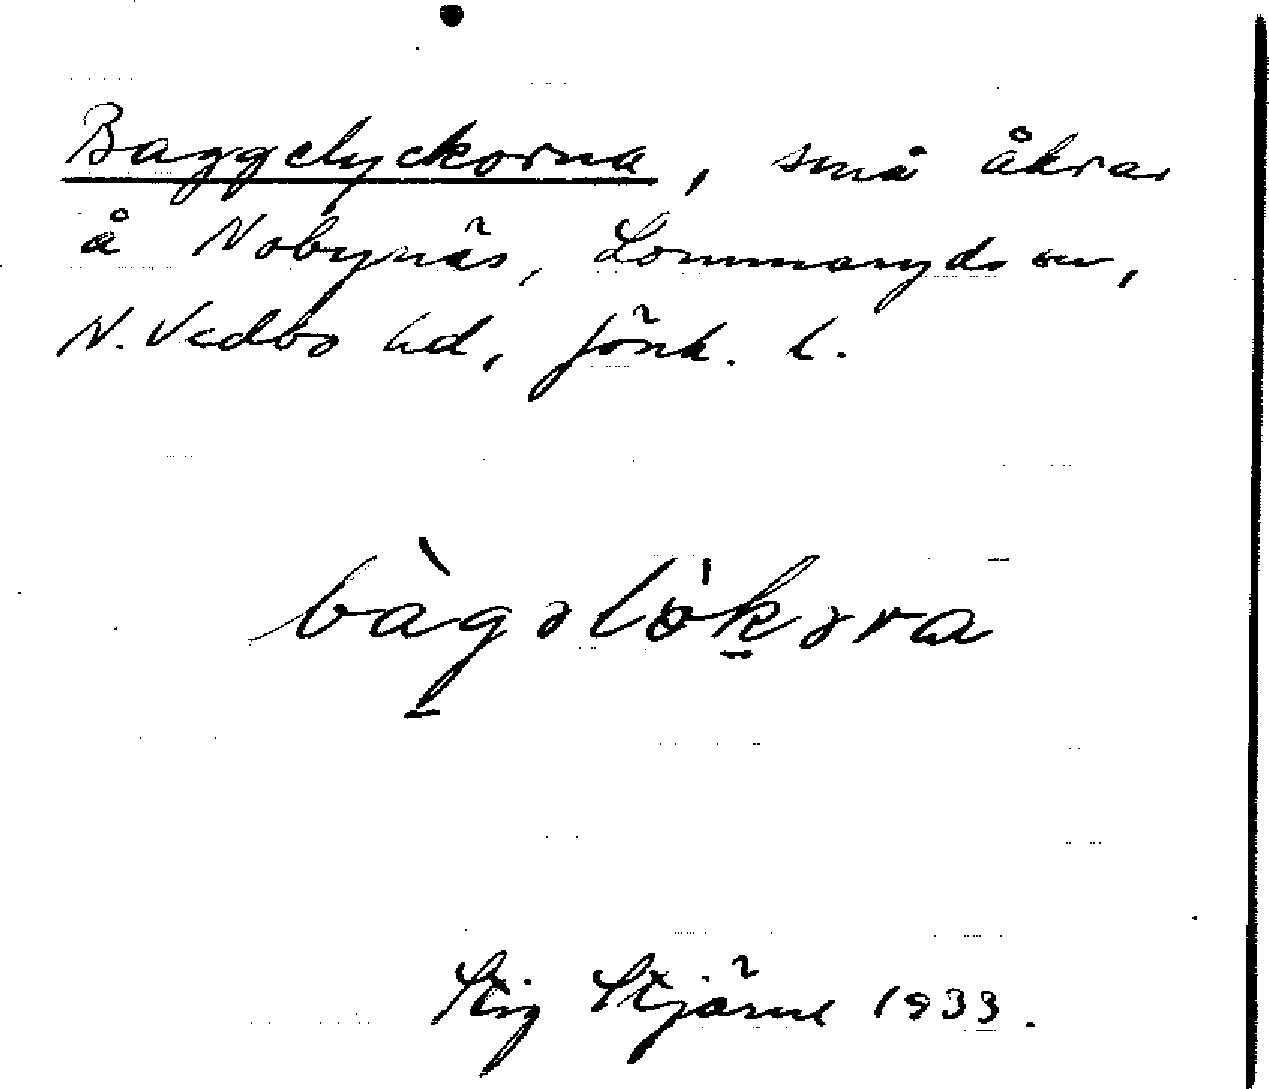 Baggelyckorna, små åkrar
å Nobynäs, Lommaryds sn,
N. Vedbo hd, Jönk. l.
bàgəlökəra
Stig Stjärne 1933.